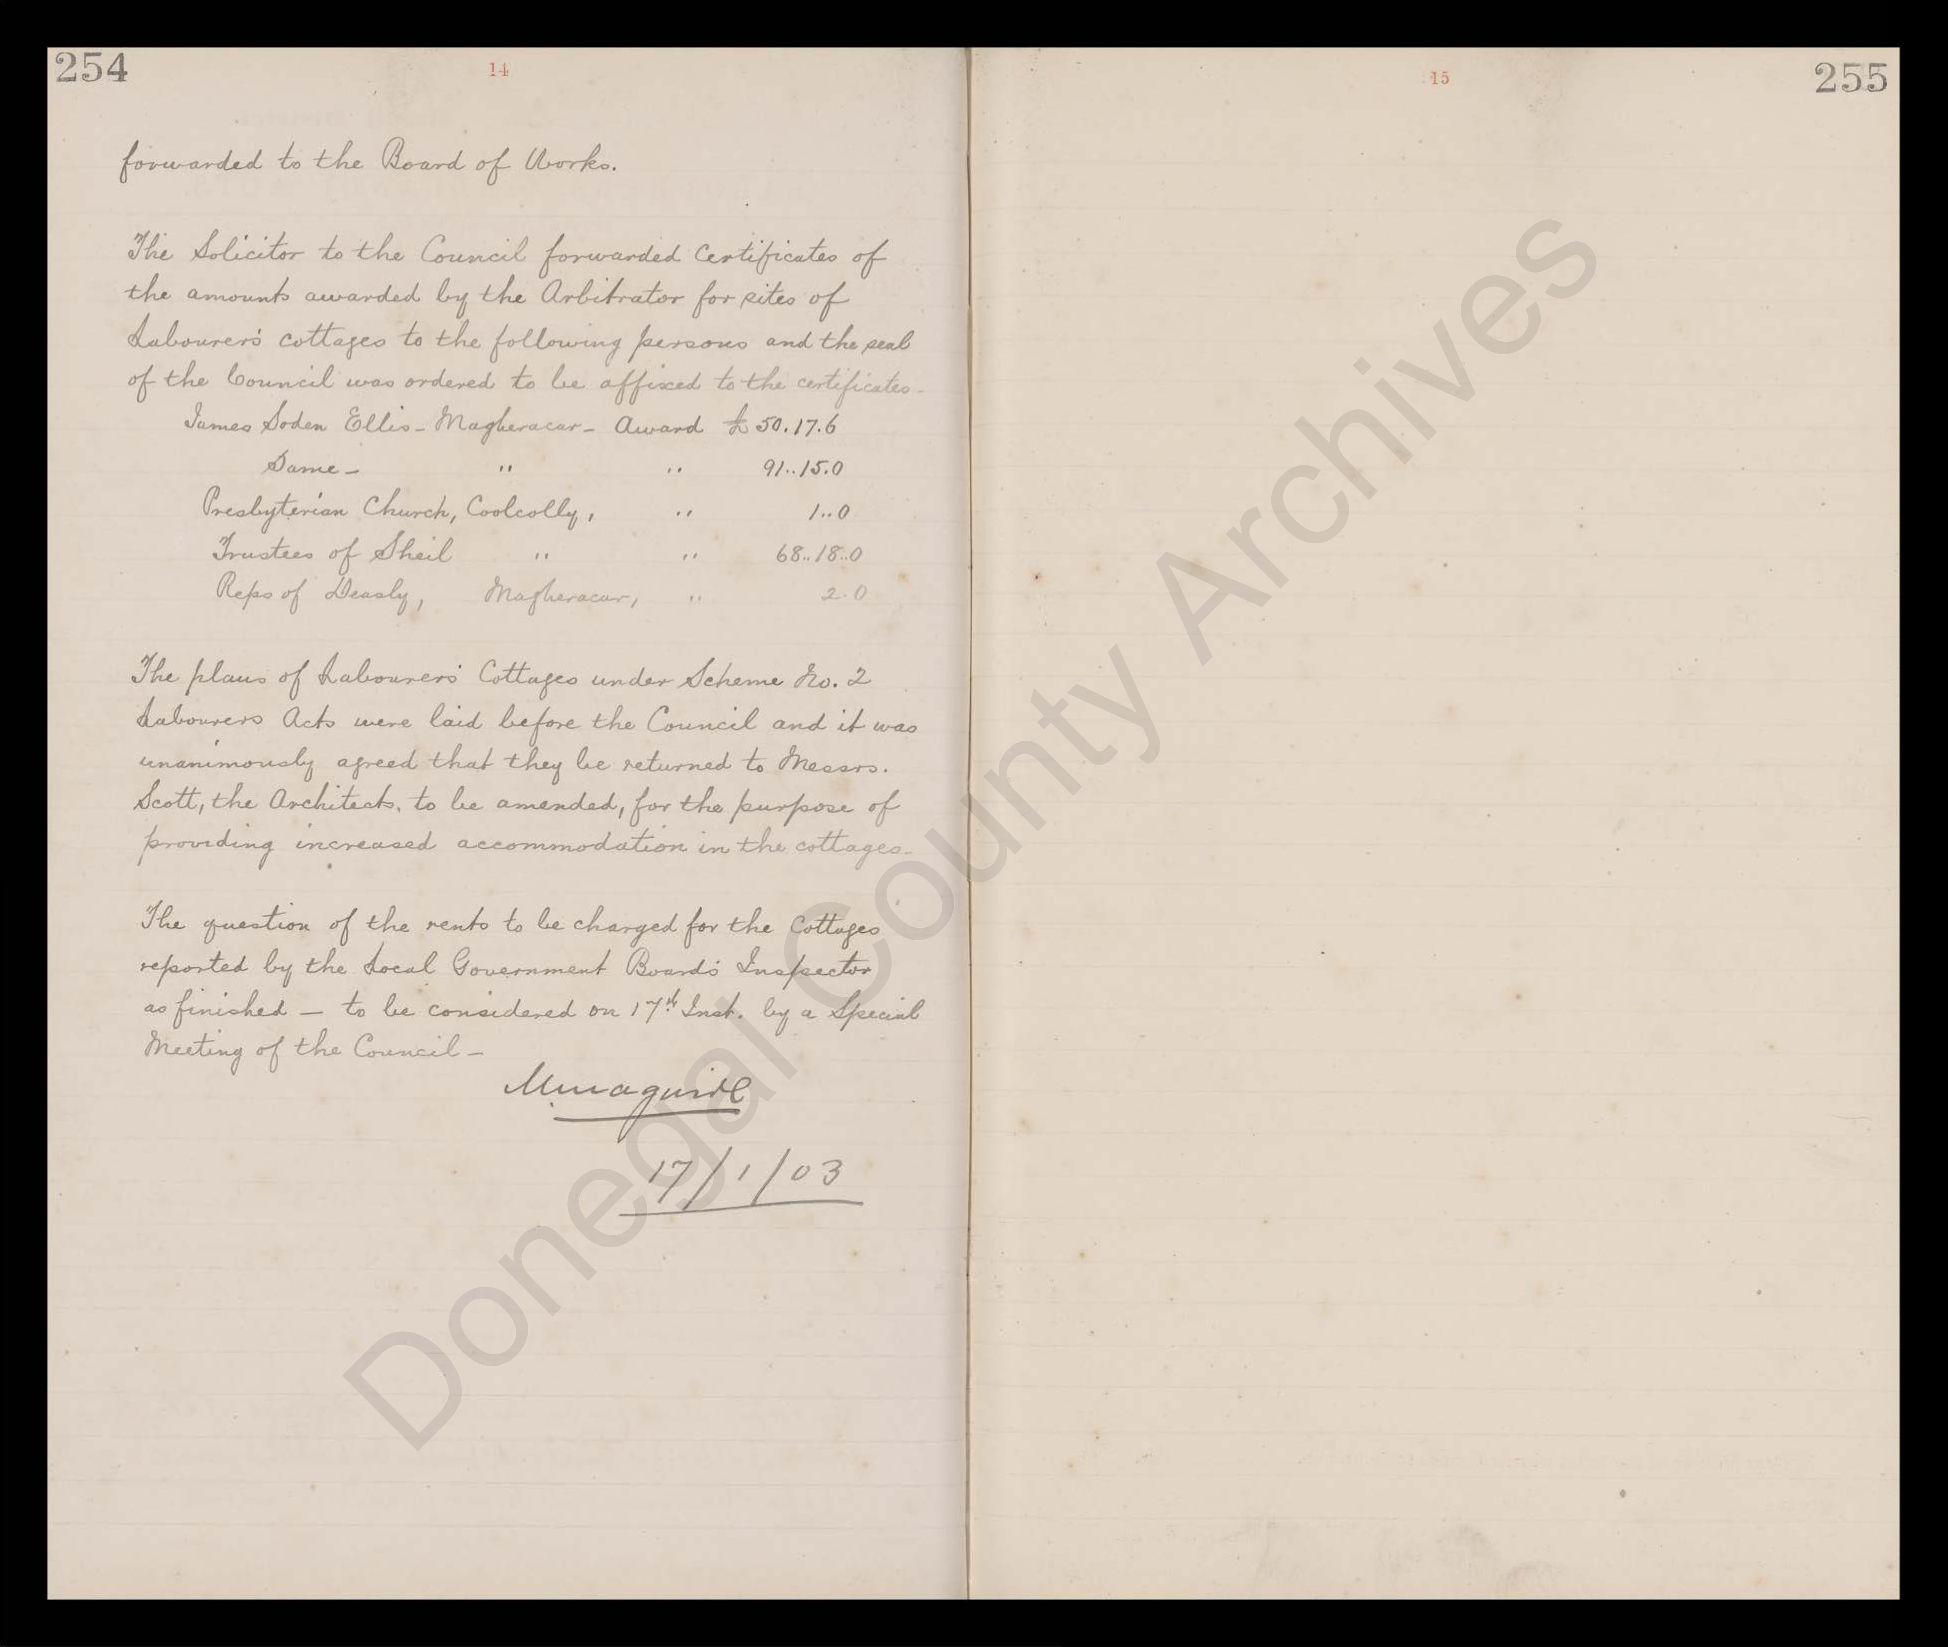 254
14
forwarded to the Board of Works.
The Solicitor to the Council forwarded Certificates of
the amounts awarded by the Arbitrator for sites of
Labourers' cottages to the following persons and the seal
of the Council was ordered to be affixed to the certificates -
James Soden Ellis - Magheracar - Award £ 50.17.6
Same - " " 91..15.0
Presbyterian Church, Coolcolly, " 1..0
Trustees of Sheil " " 68..18..0
Reps of Deasly, Magheracar, " 2.0
The plans of Labourers' Cottages under Scheme No. 2
Labourers Acts were laid before the Council and it was
unanimously agreed that they be returned to Messrs.
Scott, the Architects, to be amended, for the purpose of
providing increased accommodation in the cottages -
The question of the rents to be charged for the Cottages
reported by the Local Government Board's Inspector
as finished — to be considered on 17th Inst. by a Special
Meeting of the Council -
17/1/03
15
255
Donegal County Archives